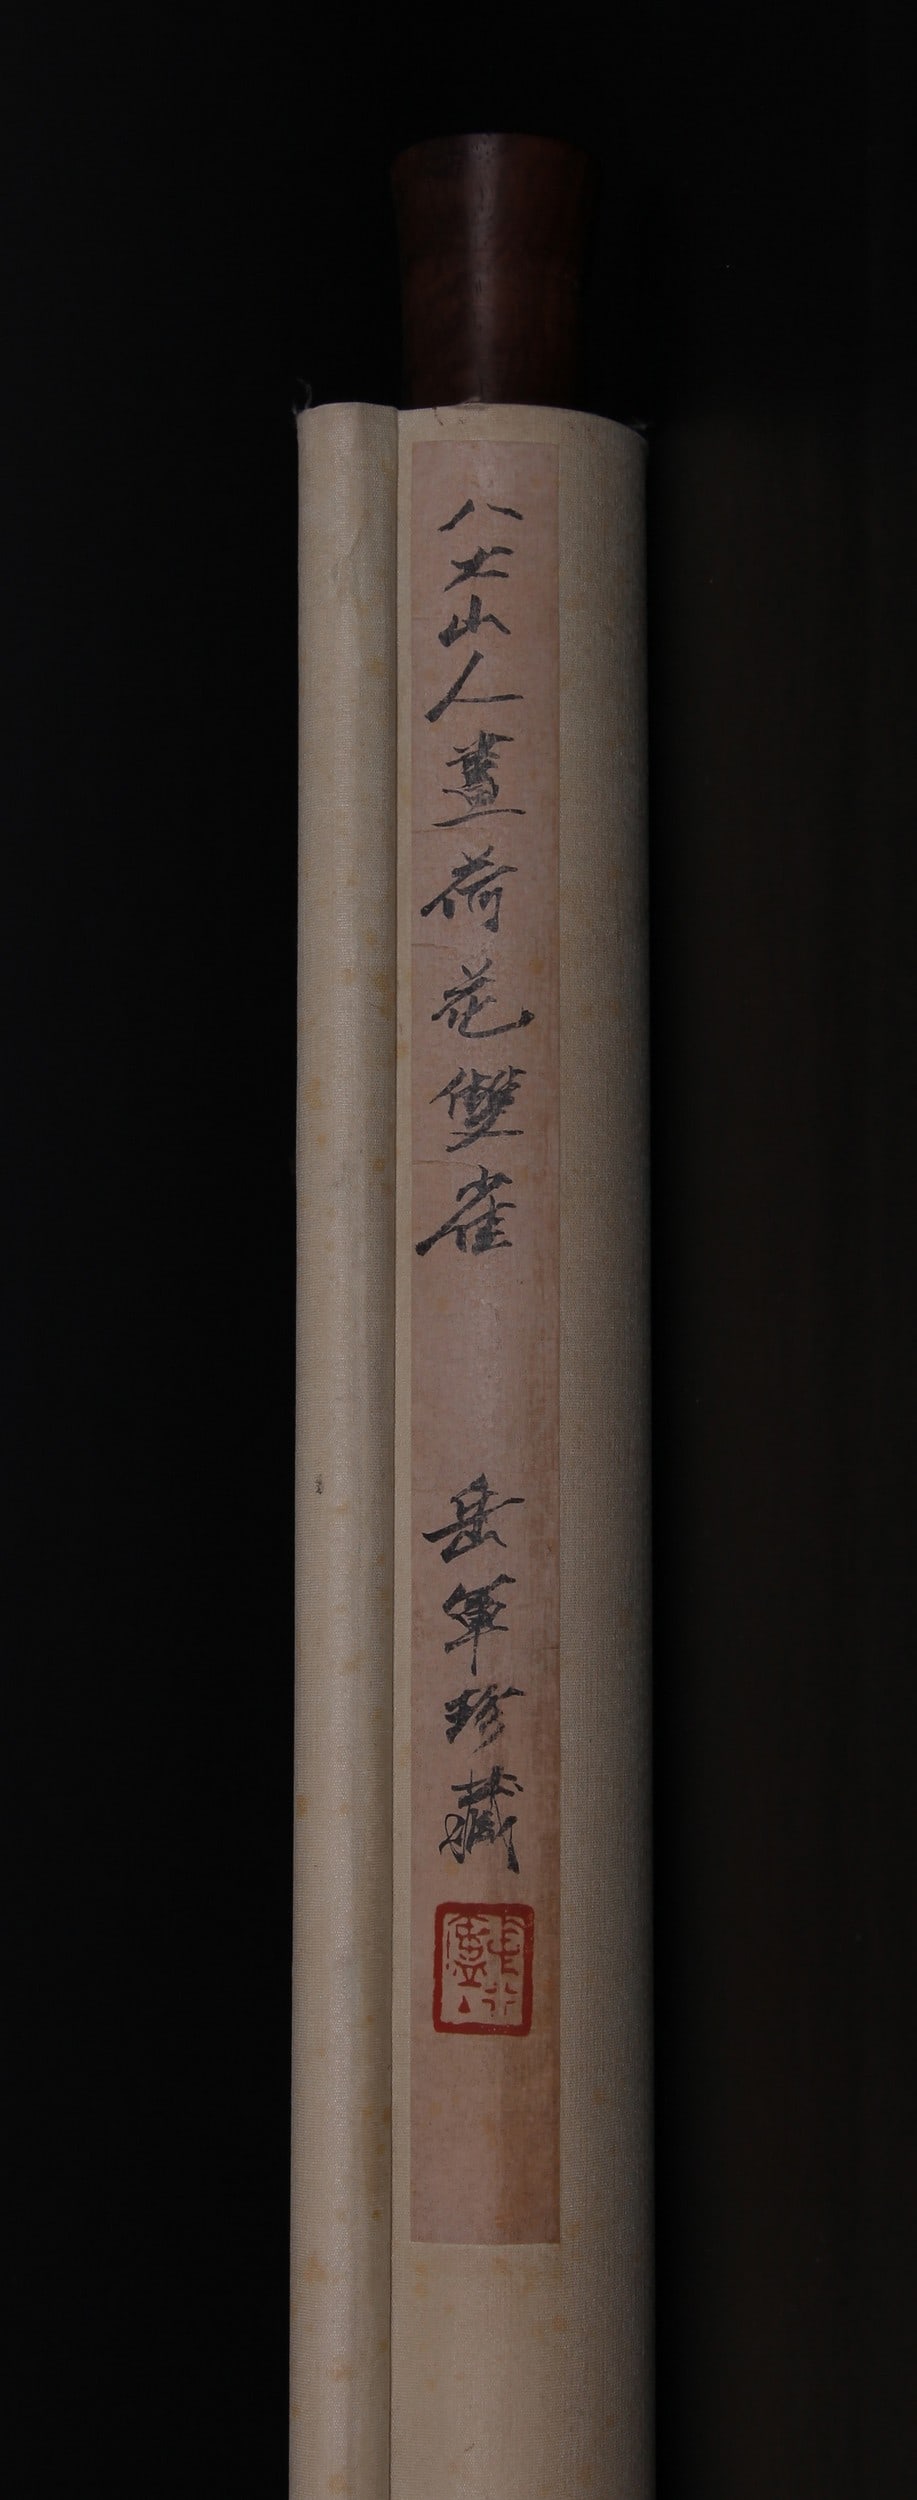 八大山人畫荷花雙雀 岳軍珍藏